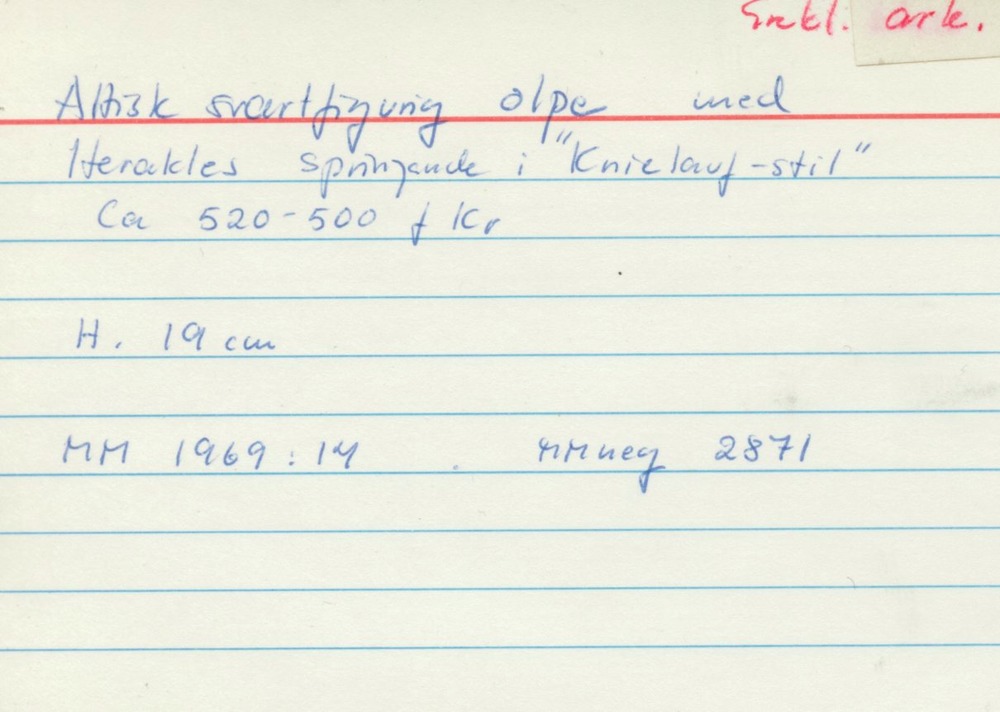 Enkl. ark.
Attisk svartfigurig olpe med
Herakles springande i "Knielauf-stil"
Ca 520-500 f Kr
H. 19 cm
MM 1969:14 MMneg 2871